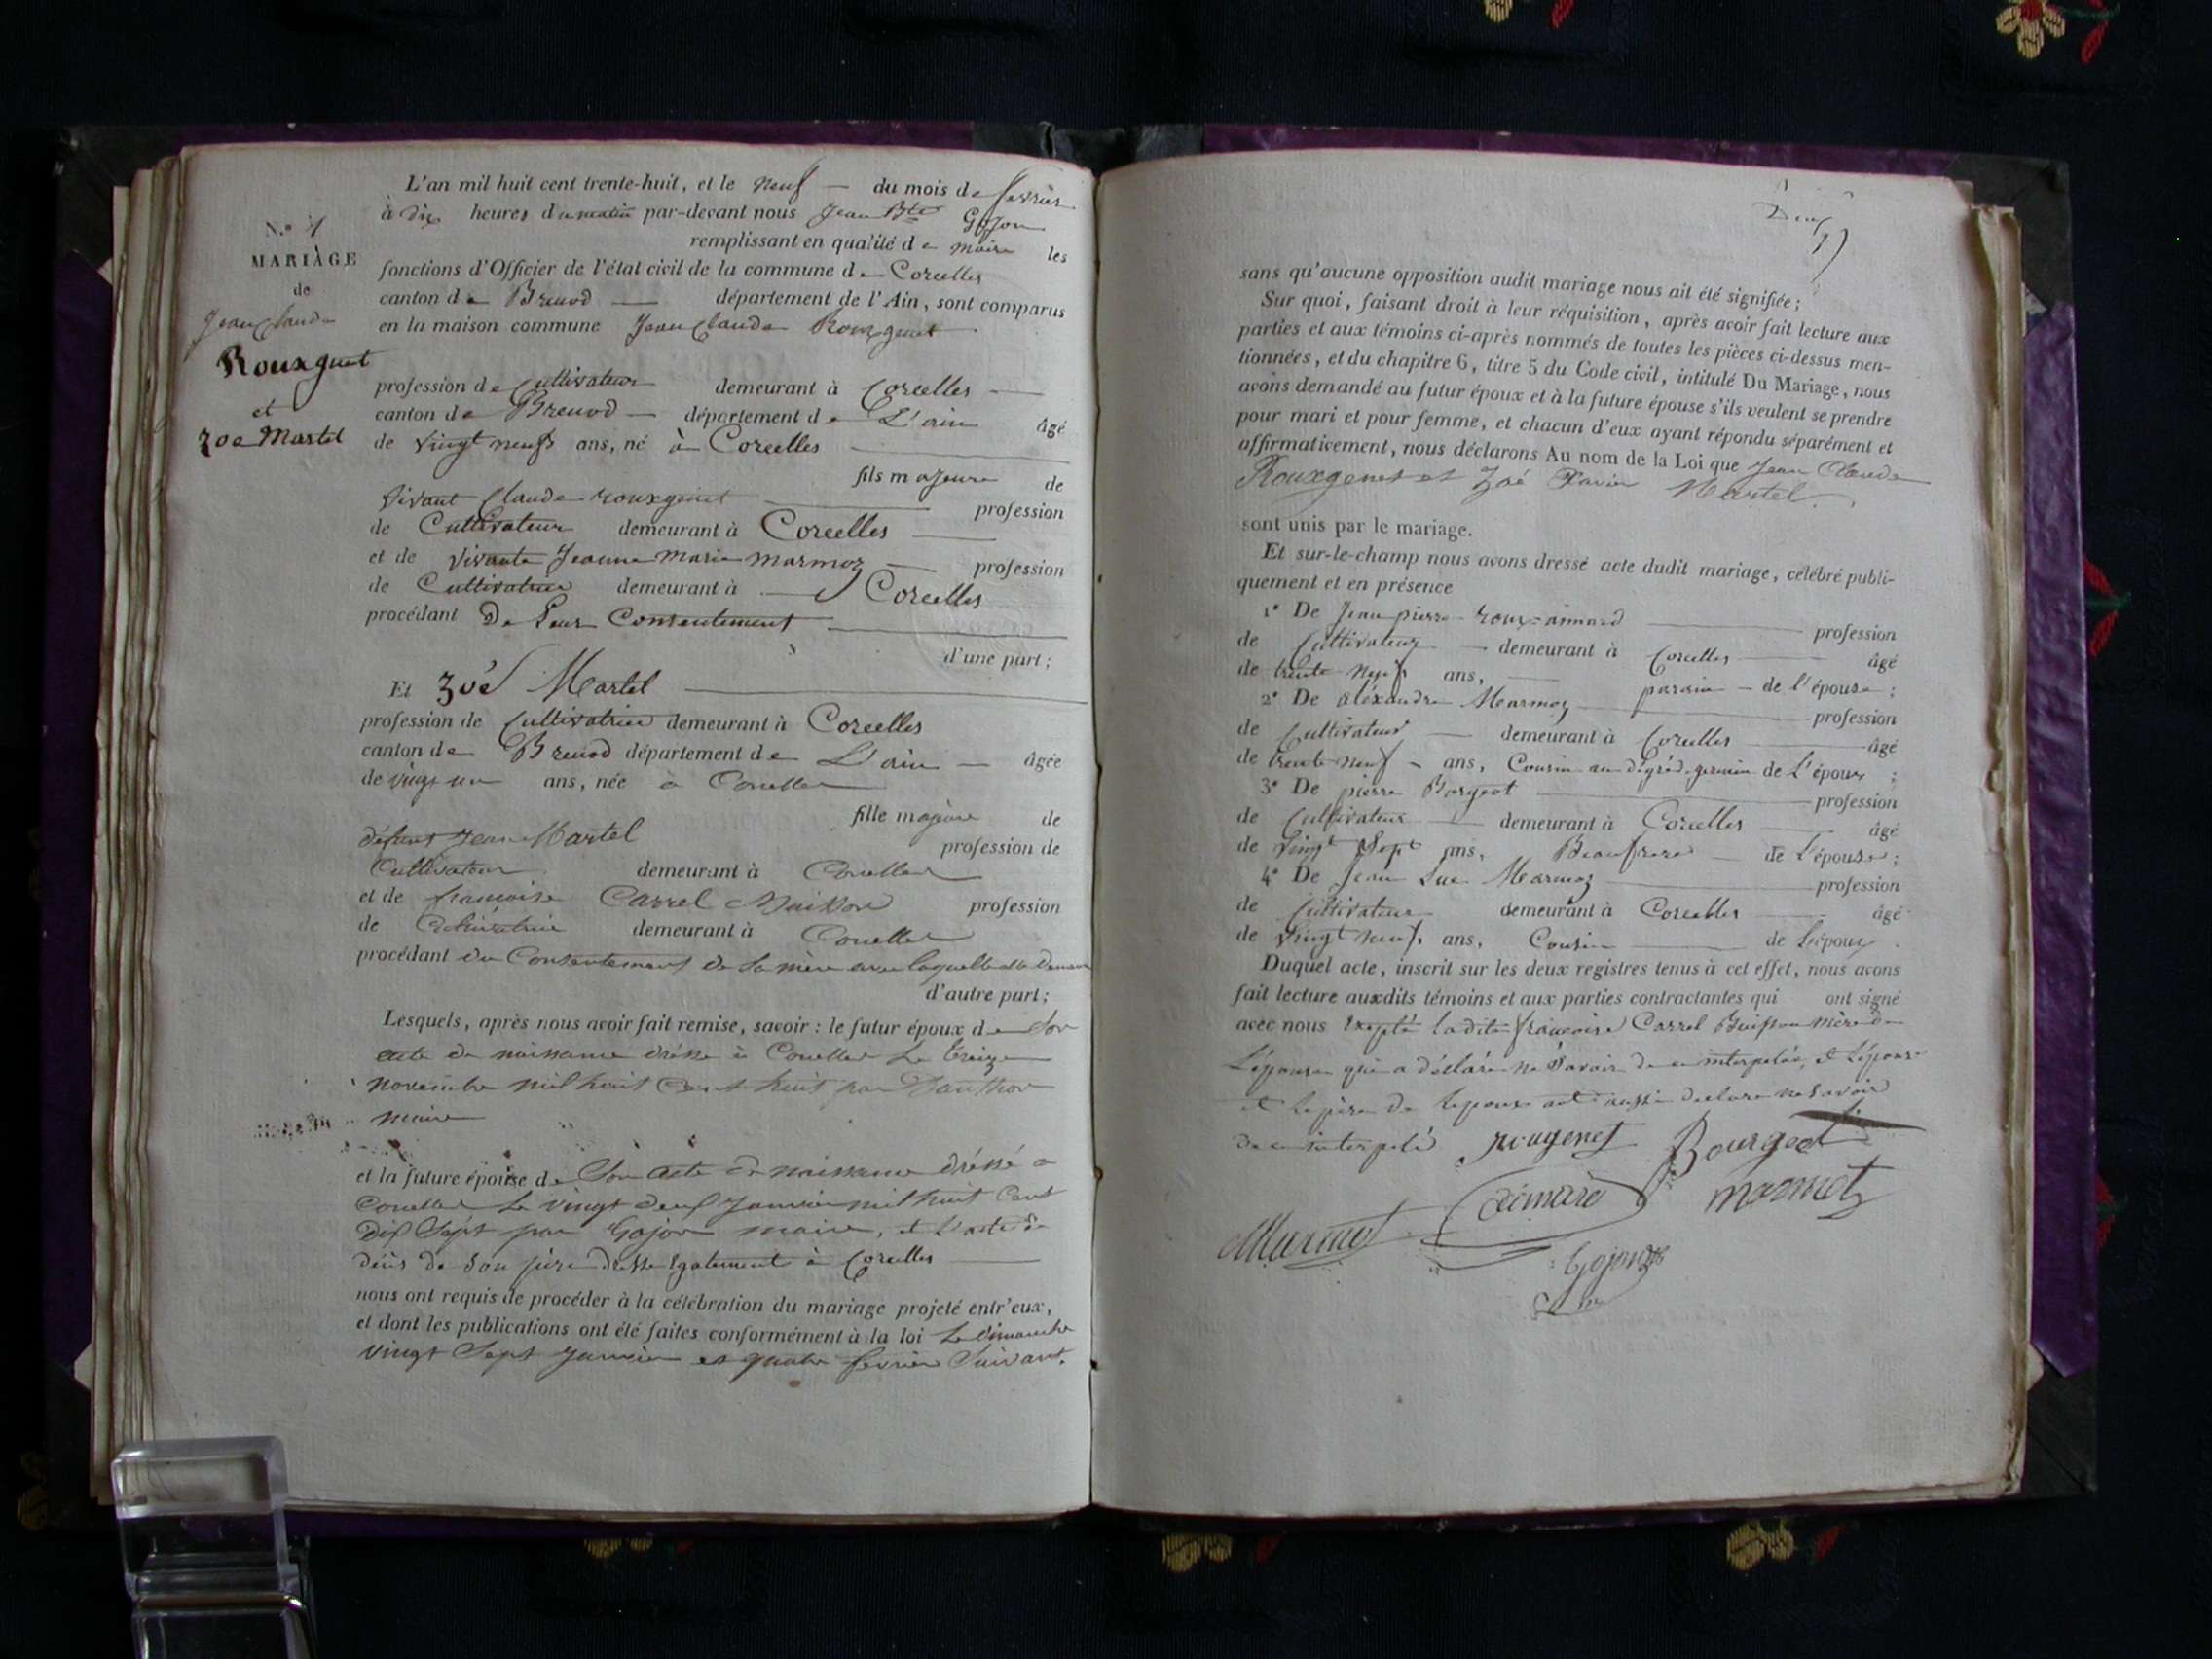 N.° 4
MARIAGE
de
Jean Claude
Rouxgenet
et
Zoé Martel
L'an mil huit cent trente-huit, et le neuf du mois de fevrier
à dix heures du matin par-devant nous Jean Bte Gojon
remplissant en qualité de maire les
fonctions d'Officier de l'état civil de la commune de Corcelles
canton de Brenod département de l'Ain, sont comparus
en la maison commune Jean Claude Rouxgenet
profession de Cultivateur demeurant à Corcelles
canton de Brenod département de L'ain âgé
de vingt neuf ans, né à Corcelles
fils majeure de
vivant Claude rouxgenet profession
de Cultivateur demeurant à Corcelles
et de vivante Jeanne Marie marmoz profession
de Cultivatrice demeurant à Corcelles
procédant De Leur Consentement
d'une part;
Et Zoé Martel
profession de Cultivatrice demeurant à Corcelles
canton de Brenod département de L'ain âgée
de vingt un ans, née à Corcelles
fille majeure de
défunt Jean Martel profession de
Cultivateur demeurant à Corcelles
et de francoise Carrel Buisson profession
de Cultivatrice demeurant à Corcelles
procédant du Consentement de Sa mère avec laquelle elle demeure
d'autre part;
Lesquels, après nous avoir fait remise, savoir: le futur époux de Son
acte de naissance dréssé à Corcelles Le treize
novembre mil huit Cent huit par
maire
et la future épouse de Son acte de naissance dréssé a
Corcelles Le vingt deux Janvier mil huit Cent
dix Sept par Gojon maire, et L'acte de
décès de Son père dressé Egalement à Corcelles
nous ont requis de procéder à la célébration du mariage projeté entr'eux,
et dont les publications ont été faites conformément à la loi Le dimanche
vingt Sept Janvier et quatre fevrier Suivant.
sans qu'aucune opposition audit mariage nous ait été signifiée;
Sur quoi, faisant droit à leur réquisition, après avoir fait lecture aux
parties et aux témoins ci-après nommés de toutes les pièces ci-dessus men-
tionnées, et du chapitre 6, titre 5 du Code civil, intitulé Du Mariage, nous
avons demandé au futur époux et à la future épouse s'ils veulent se prendre
pour mari et pour femme, et chacun d'eux ayant répondu séparément et
affirmativement, nous déclarons Au nom de la Loi que Jean Claude
Rouxgenet et Zoé Xavier Martel
sont unis par le mariage.
Et sur-le-champ nous avons dressé acte dudit mariage, célébré publi-
quement et en présence
1° De Jean pierre roux-aimard profession
de Cultivateur demeurant à Corcelles âgé
de trente neuf ans, parain de l'épouse;
2° De aléxandre Marmoz profession
de Cultivateur demeurant à Corcelles âgé
de trente neuf ans, Cousin au dégré de germain de L'époux;
3° De pierre Borgeot profession
de Cultivateur demeurant à Corcelles âgé
de vingt Sept ans, Beaufrere de L'épouse;
4° De Jean Luc Marmoz profession
de Cultivateur demeurant à Corcelles âgé
de vingt neuf ans, Cousin de L'époux
Duquel acte, inscrit sur les deux registres tenus à cet effet, nous avons
fait lecture auxdits témoins et aux parties contractantes qui ont signé
avec nous Excepté Ladite françoise Carrel Buisson Mère de
L'épouse qui a déclaré ne Savoir de ce interpelée, et L'épouse
et Le père de Lepoux ont aussi declaré ne Savoir
de ce interpelé rougenet Bourgeot
Marmet aimard marmotz
Gojon